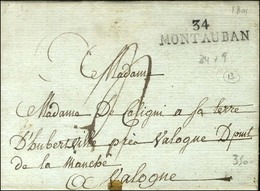 1801
34
MONTAUBAN
24 x 9
13
Madame
Madame De Caligni a sa terre
D'hubertville près Valogne Dpmt
de la manche
a Valogne
350-